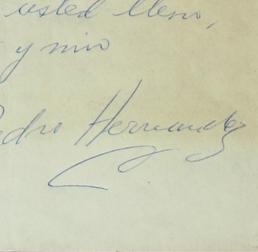 usted tiene,
y mio
Pedro Hernandez